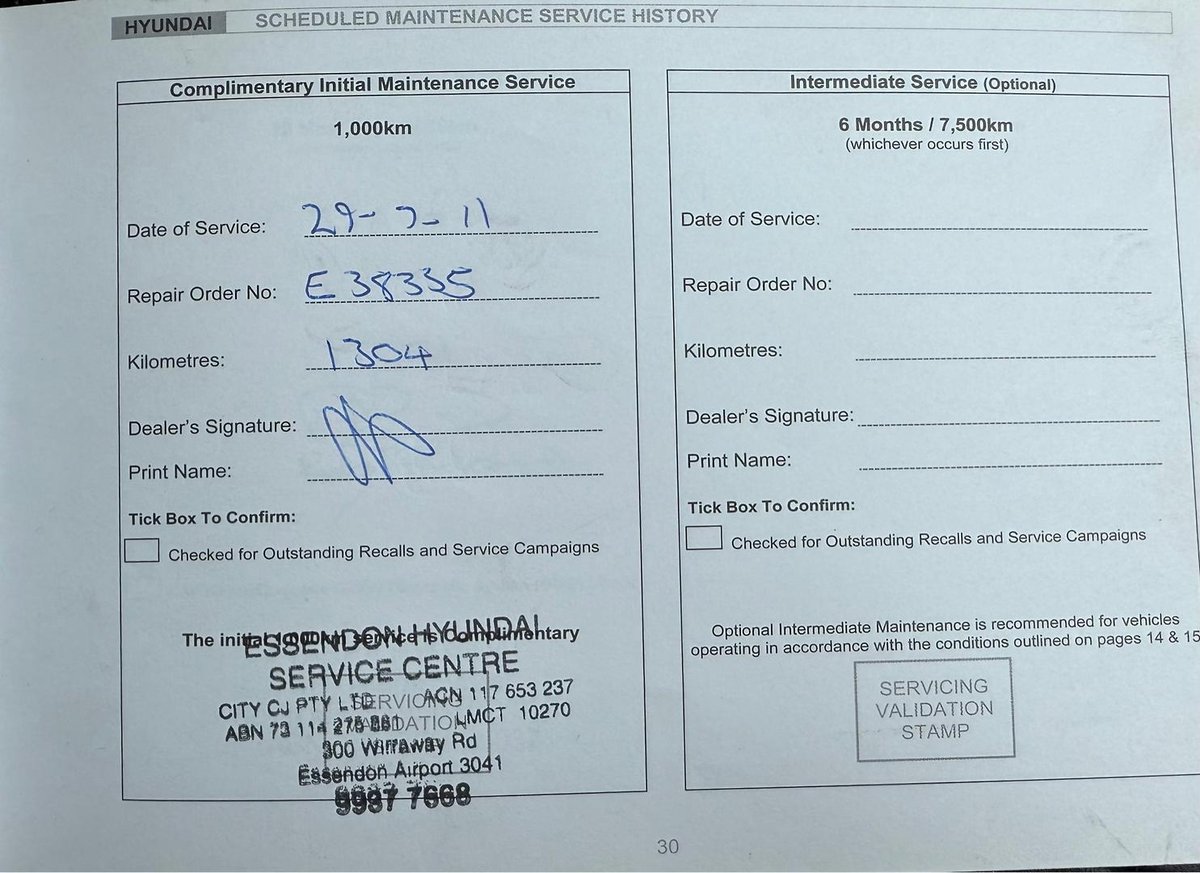 HYUNDAI
SCHEDULED MAINTENANCE SERVICE HISTORY
Complimentary Initial Maintenance Service
1,000km
Date of Service: 29-7-11
Repair Order No: E 38335
Kilometres: 1304
Dealer's Signature:
Print Name:
Tick Box To Confirm:
Checked for Outstanding Recalls and Service Campaigns
The initial 1,000km service is Complimentary
ESSENDON HYUNDAI
SERVICE CENTRE
CITY CJ PTY LTD ACN 117 653 237
ABN 73 114 LMCT 10270
300 Wirraway Rd
Essendon Airport 3041
7668
Intermediate Service (Optional)
6 Months / 7,500km
(whichever occurs first)
Date of Service:
Repair Order No:
Kilometres:
Dealer's Signature:
Print Name:
Tick Box To Confirm:
Checked for Outstanding Recalls and Service Campaigns
Optional Intermediate Maintenance is recommended for vehicles
operating in accordance with the conditions outlined on pages 14 & 15
SERVICING
VALIDATION
STAMP
30